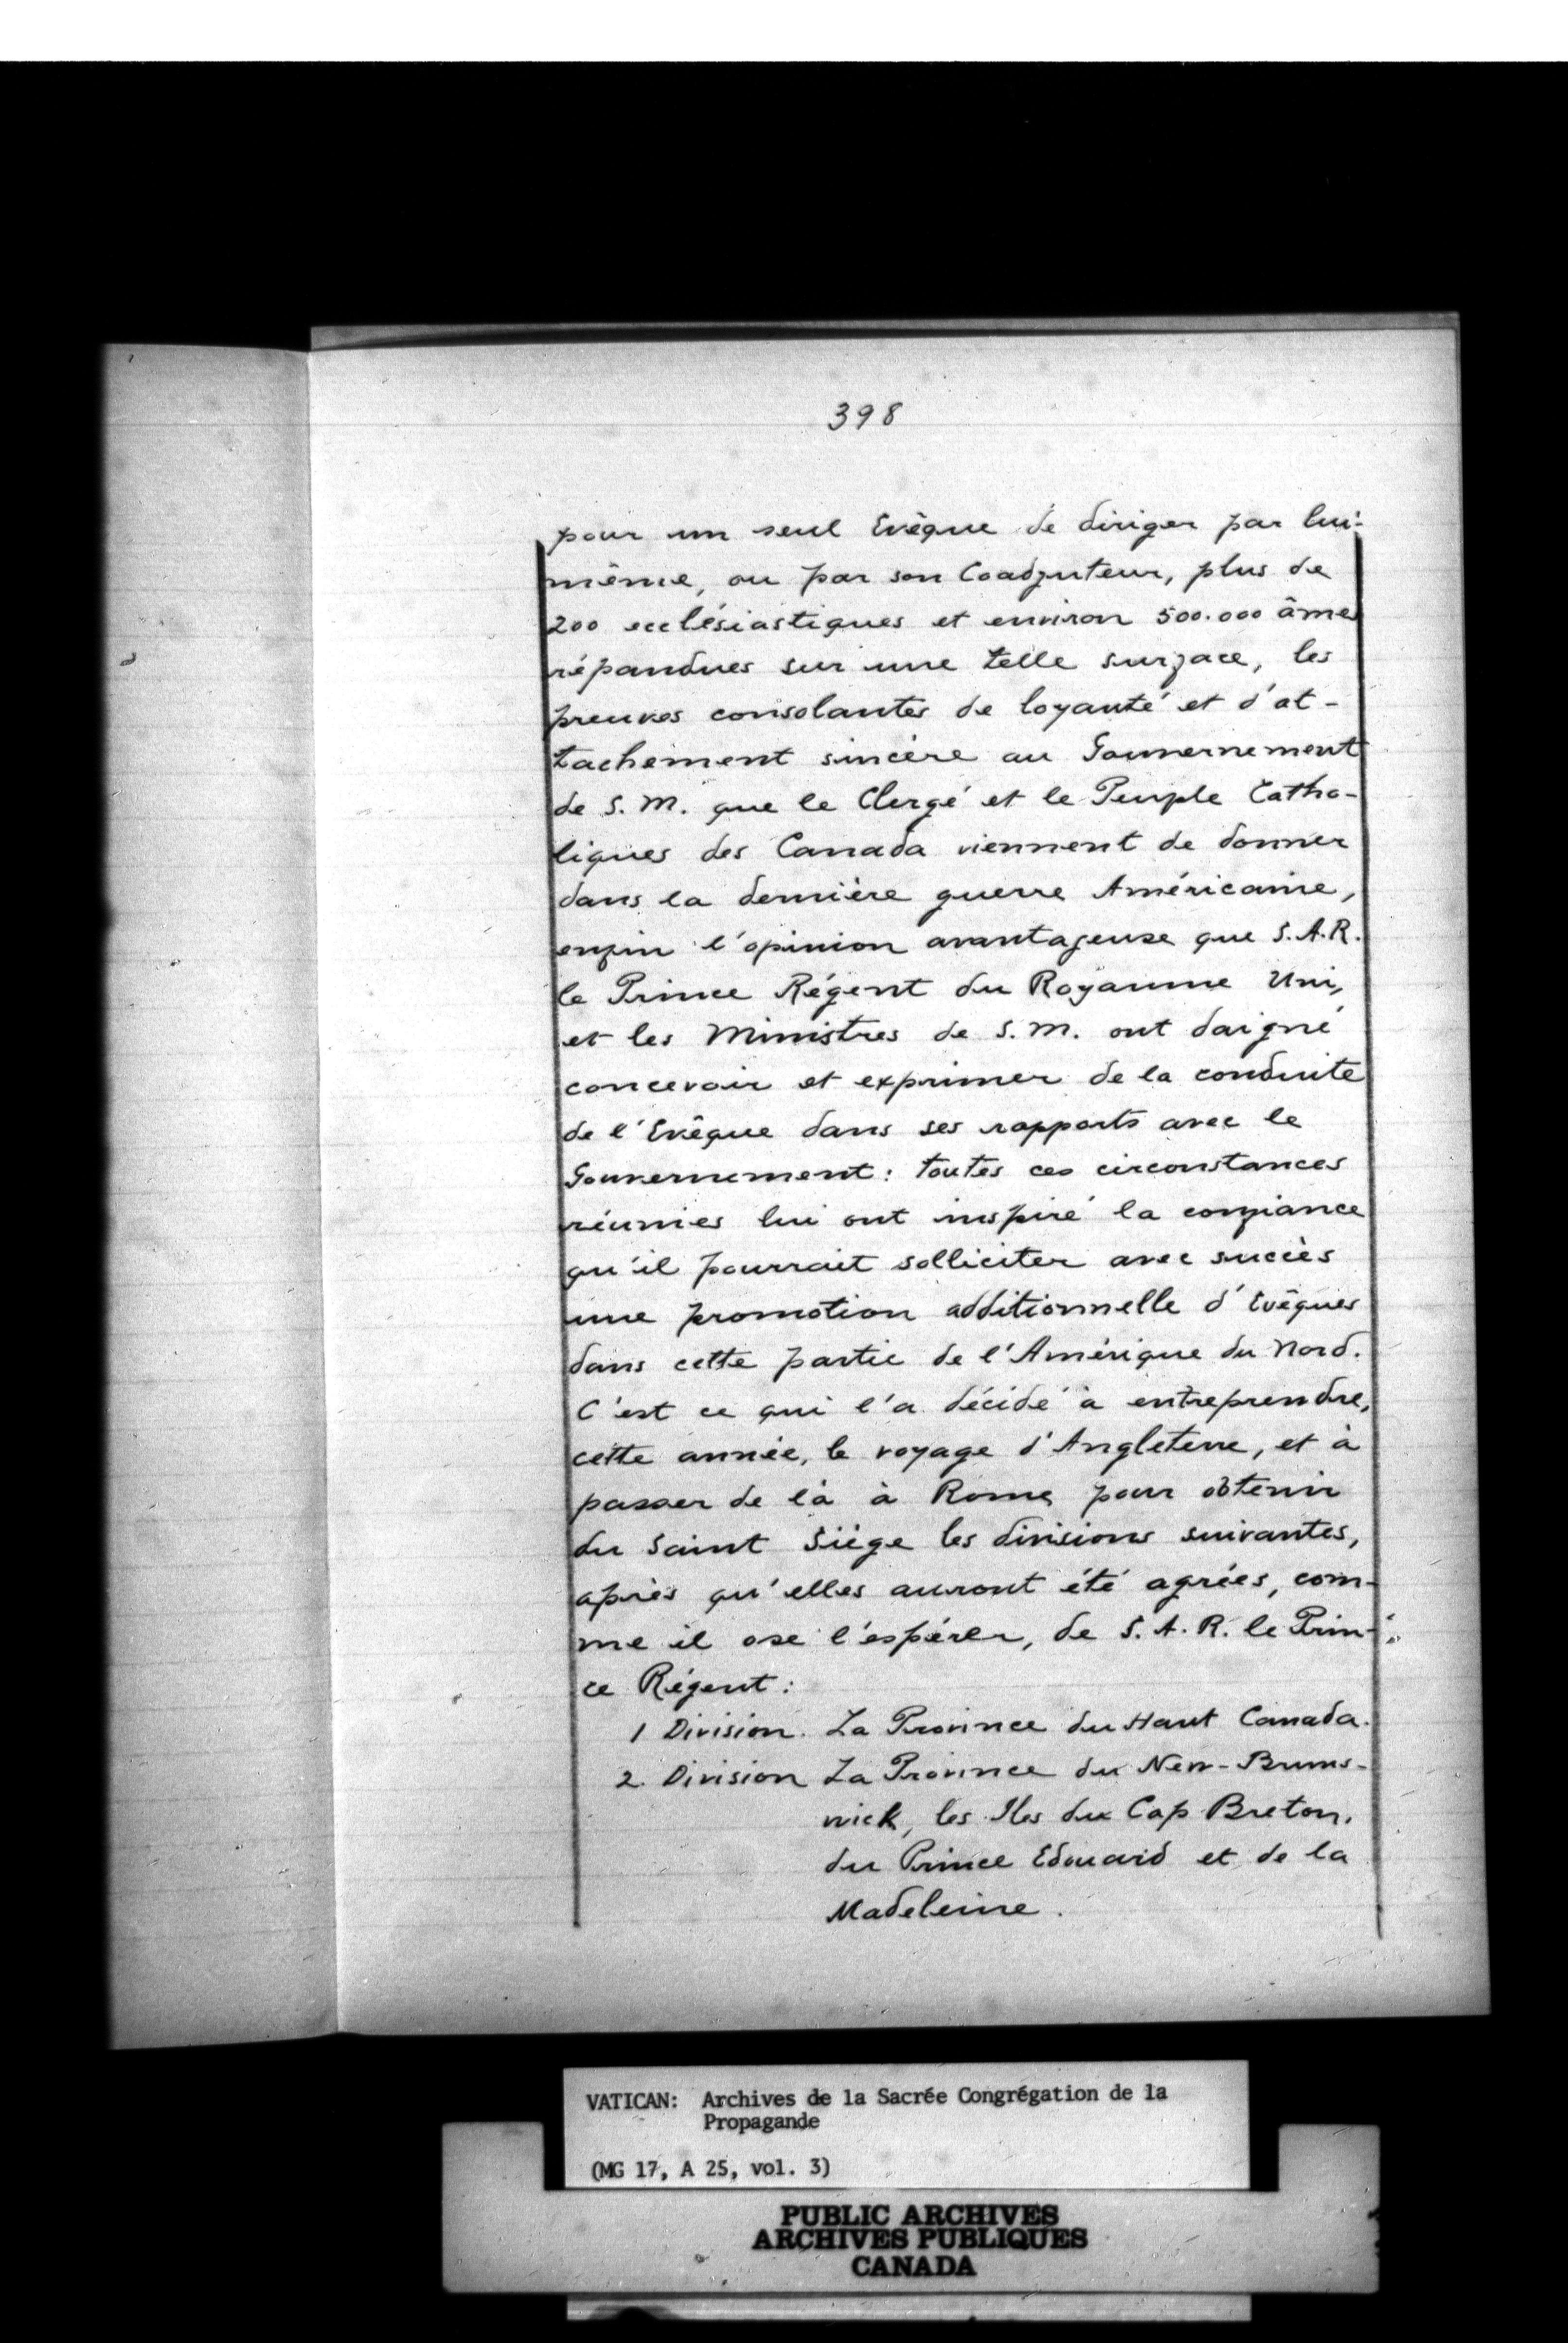 398
pour un seul Evêque de diriger par lui-
même, ou par son Coadjuteur, plus de
200 ecclésiastiques et environ 500.000 âmes
répandues sur une telle surface, les
preuves consolantes de loyauté et d'at-
tachement sincère au Gouvernement
de S. M. que le Clergé et le Peuple Catho-
liques des Canada viennent de donner
dans la dernière guerre Américaine,
enfin l'opinion avantageuse que S.A.R.
le Prince Régent du Royaume Uni,
et les Ministres de S. M. ont daigné
concevoir et exprimer de la conduite
de l'Evêque dans ses rapports avec le
Gouvernement: toutes ces circonstances
réunies lui ont inspiré la confiance
qu'il pourrait solliciter avec succès
une promotion additionnelle d'Evêques
dans cette partie de l'Amérique du Nord.
C'est ce qui l'a décidé à entreprendre,
cette année, le voyage d'Angleterre, et à
passer de là à Rome, pour obtenir
du Saint Siège les divisions suivantes,
après qu'elles auront été agrées, com-
me il ose l'espérer, de S. A. R. le Prin-
ce Régent:
1 Division. La Province du Haut Canada.
2. Division La Province du New-Bruns-
wick, les Iles du Cap Breton,
du Prince Edouard et de la
Madeleine.
VATICAN: Archives de la Sacrée Congrégation de la
Propagande
(MG 17, A 25, vol. 3)
PUBLIC ARCHIVES
ARCHIVES PUBLIQUES
CANADA